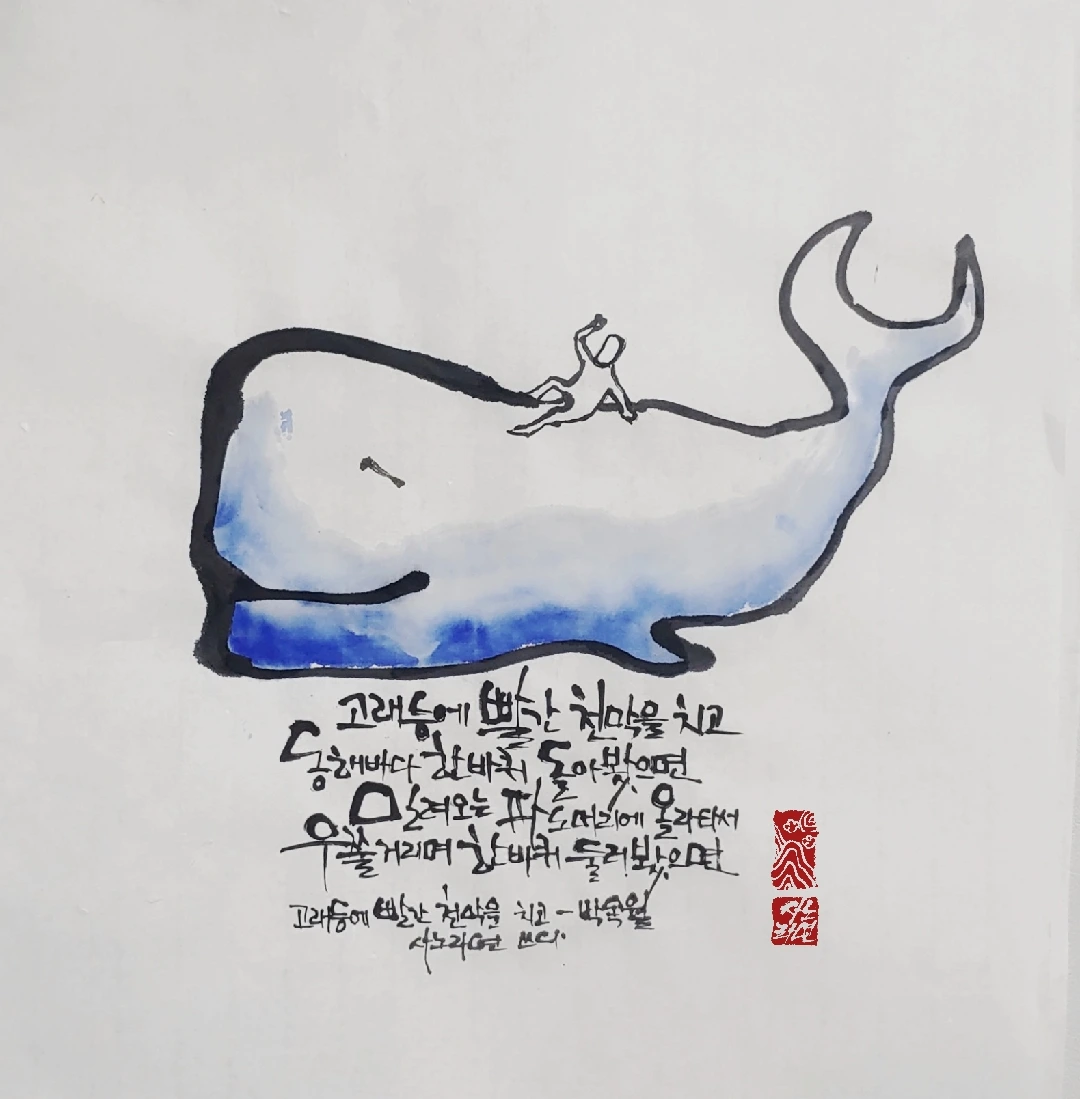 고래등에 빨간 천막을 치고
동해바다 한바퀴 돌아봤으면
밀려오는 파도머리에 올라타서
우쭐거리며 한바퀴 둘러봤으면
고래등에 빨간 천막을 치고 - 박목월
사노라면 쓰다.
사노
라면